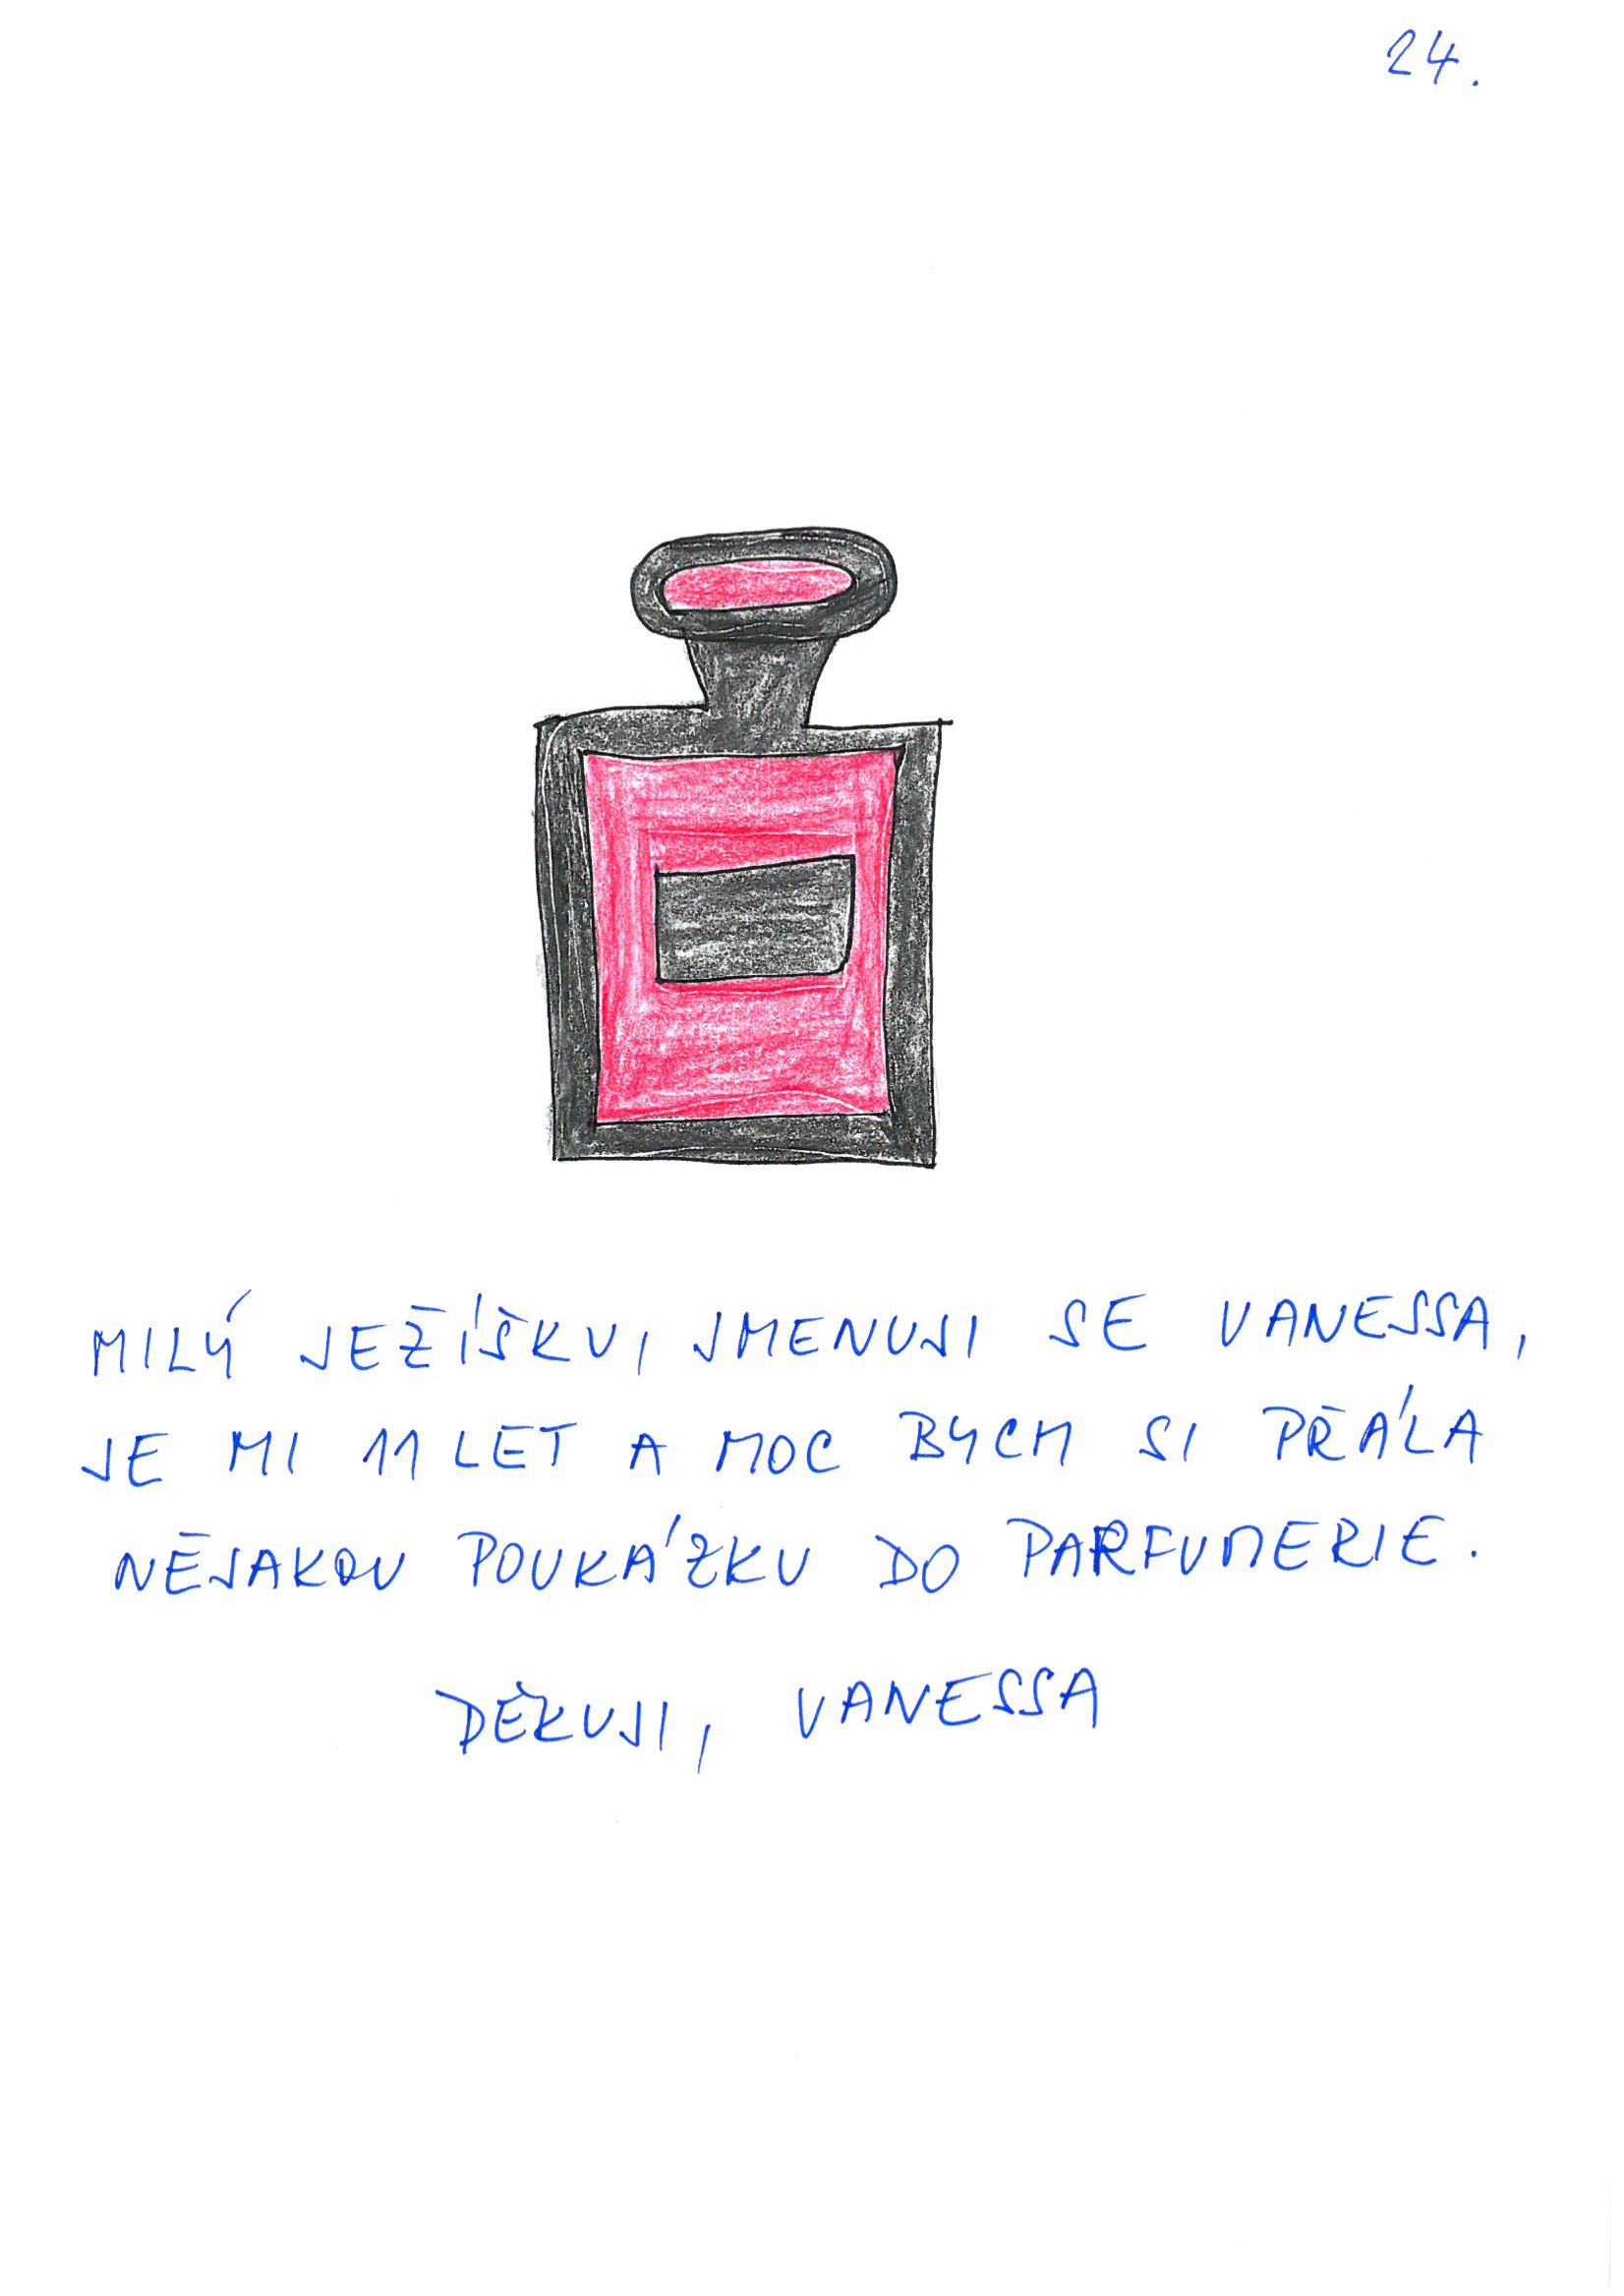 24.
MILÝ JEŽÍŠKU, JMENUJI SE VANESSA,
JE MI 11 LET A MOC BYCH SI PŘÁLA
NĚJAKOU POUKÁZKU DO PARFUMERIE.
DĚKUJI, VANESSA